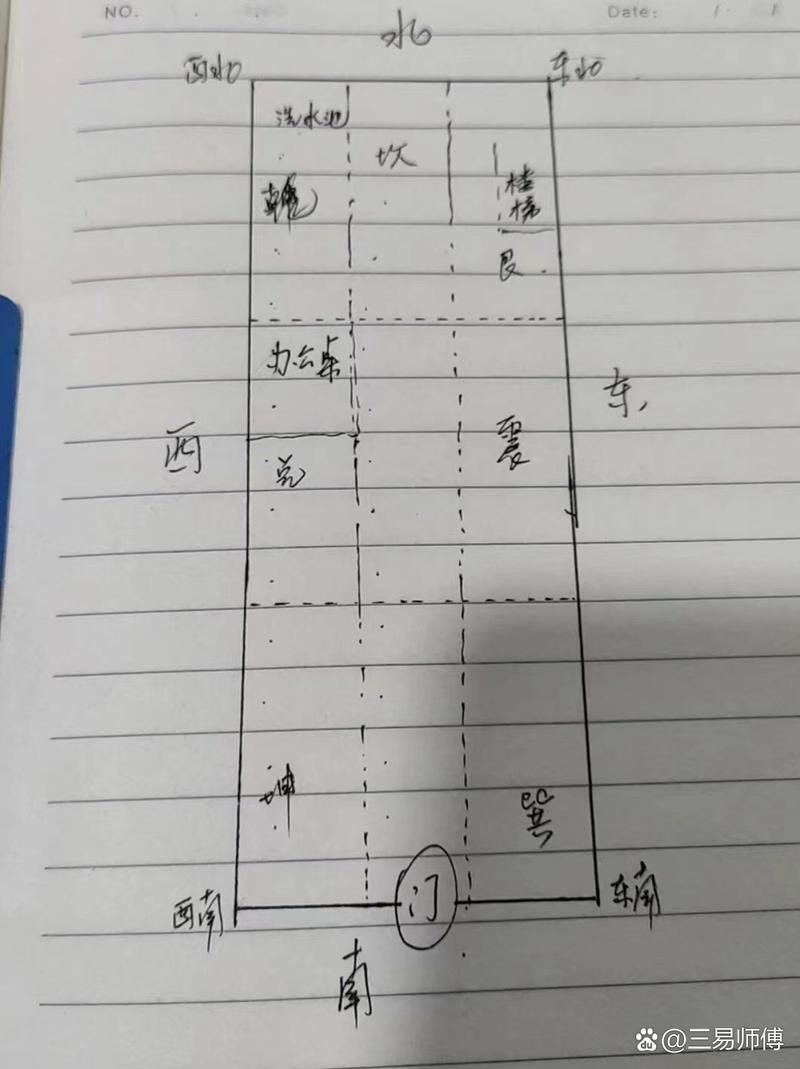 NO.
Date:
北
西北
东北
洗水池
坎
楼梯
乾
艮
办公桌
东
西
震
兑
坤
巽
门
西南
东南
南
du @三易师傅